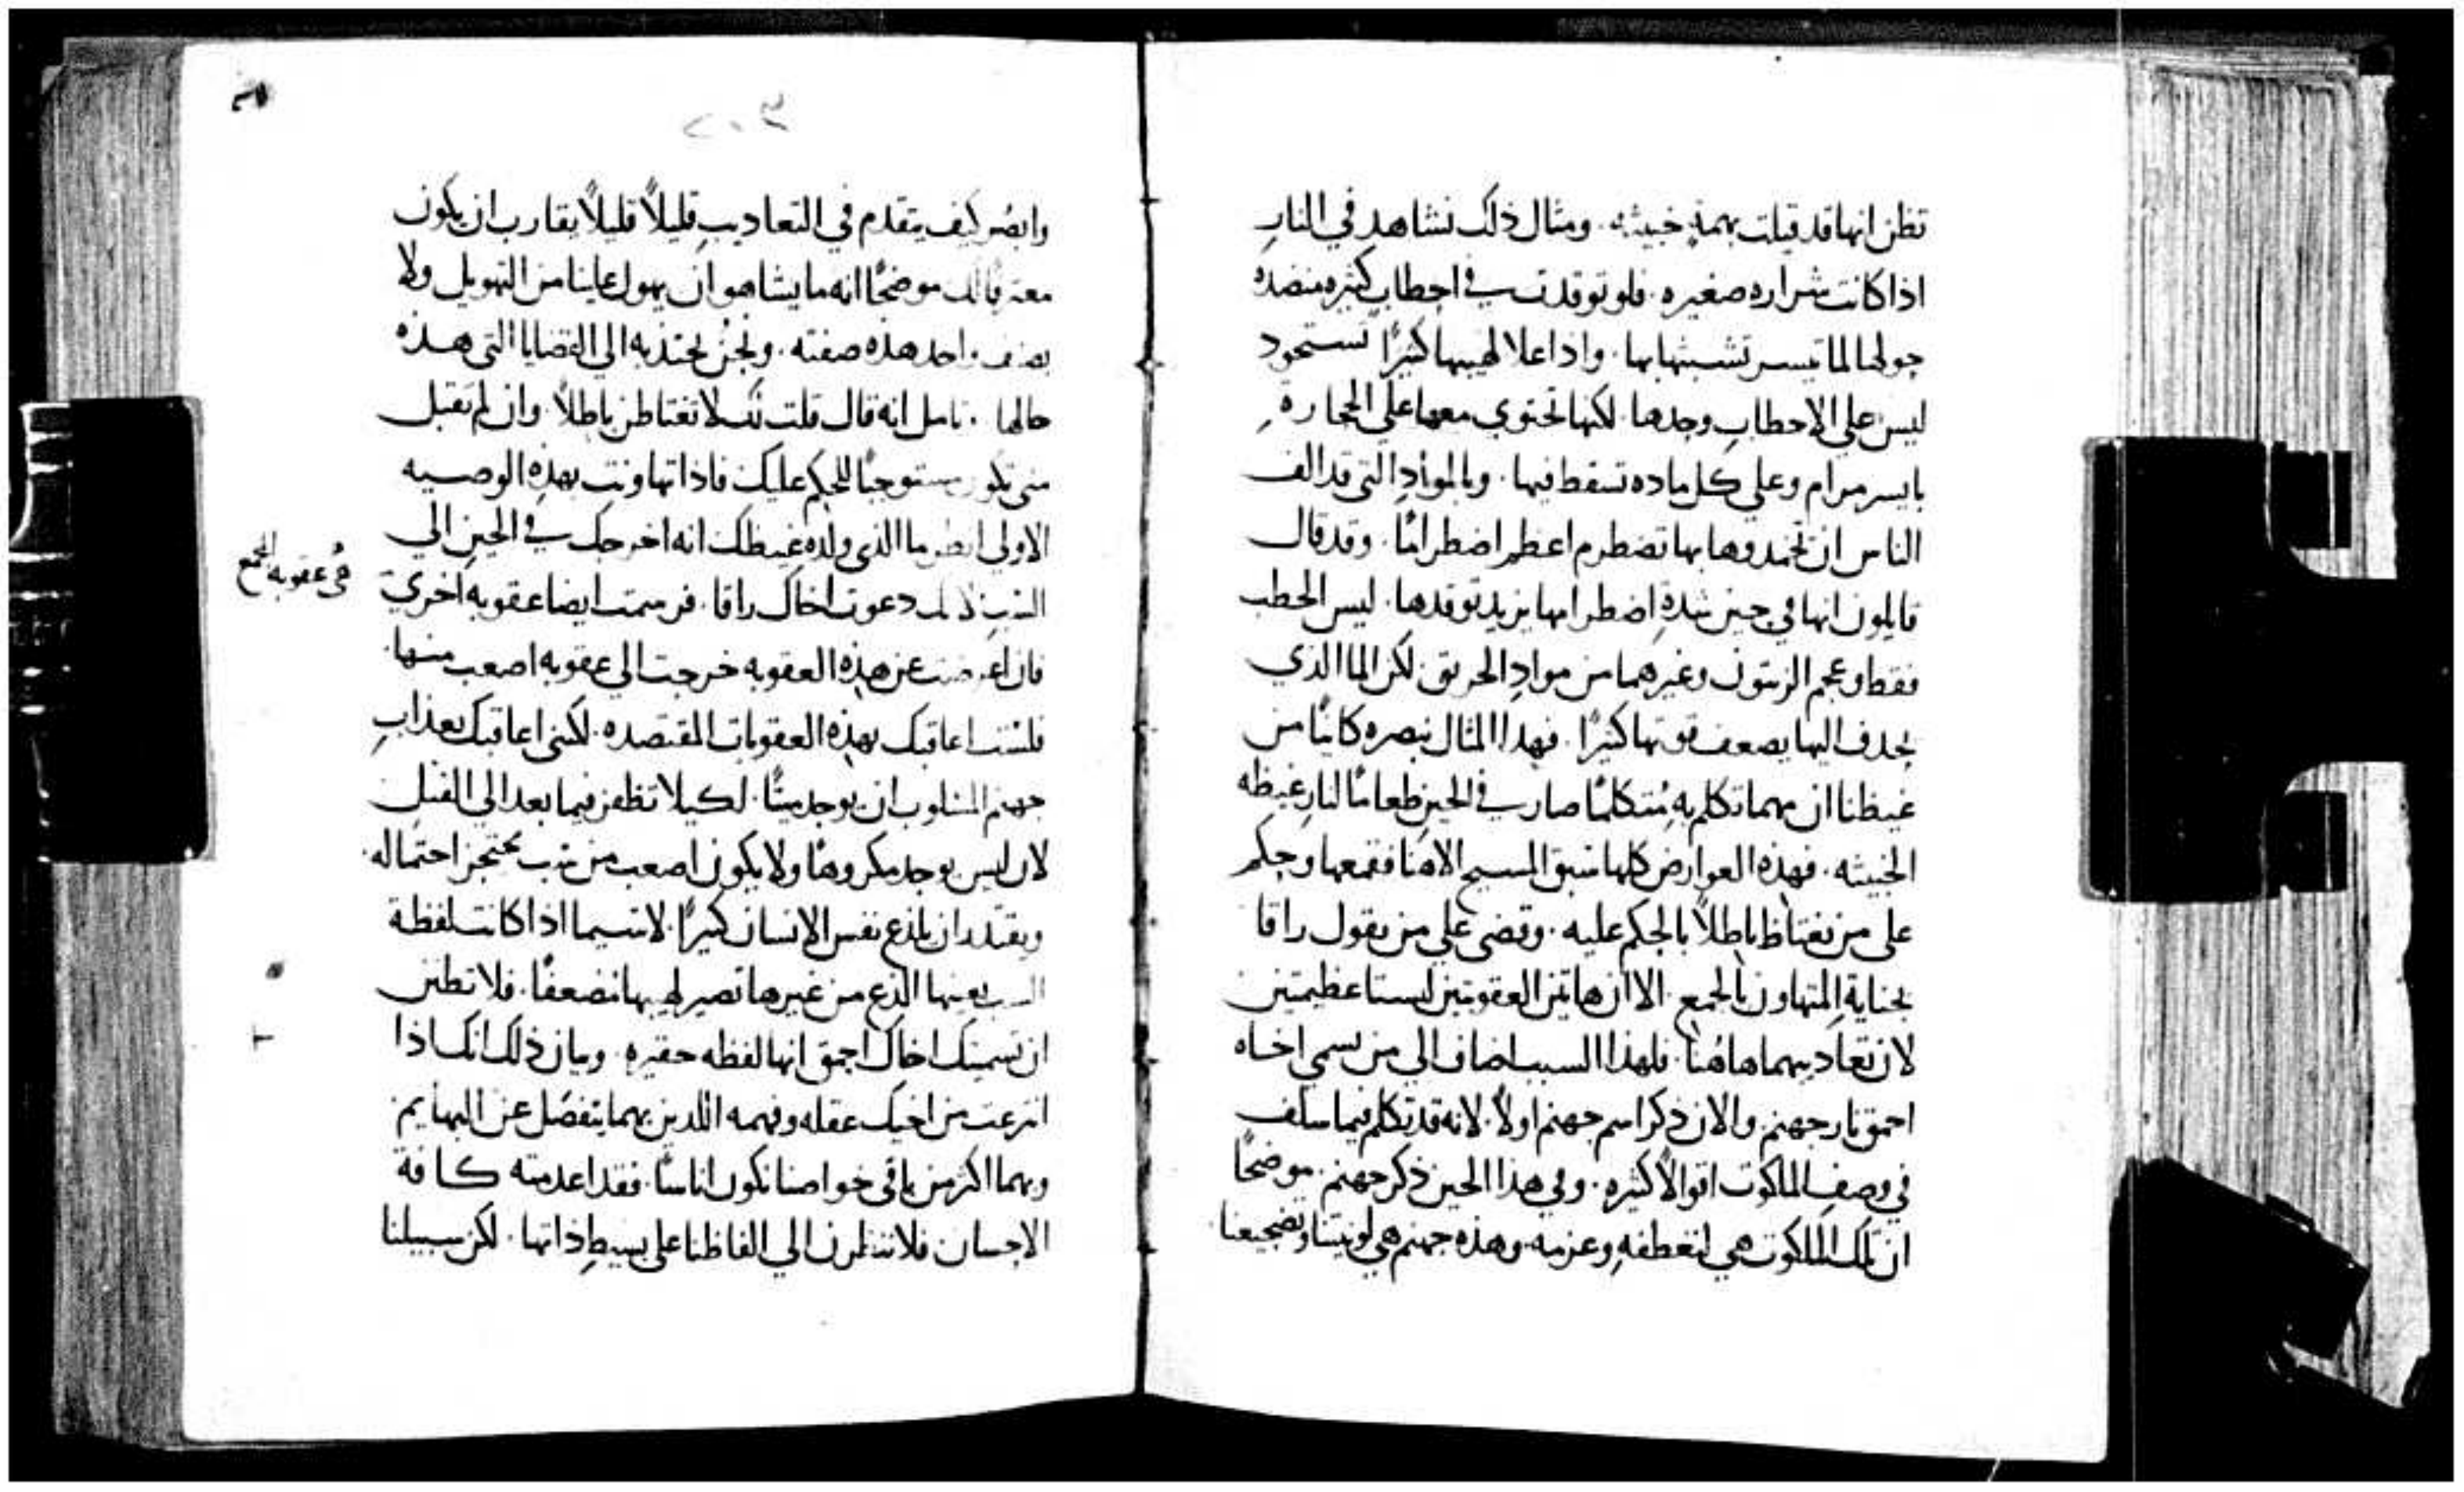 تظن انها قد قيلت بهمةٍ خبيثه. ومثال ذلك نشاهد في النارِ
اذا كانت شراره صغيره. فلو توقدت في احطابٍ كثيره منضدة
حولها لما تيسر تشبثها بها. واذا علا لهيبها كثيرًا تستحود
ليس علي الاحطابِ وحدها. لكنها تحتوي معها علي الحجارةِ
بايسر مرام وعلي كل ماده تسقط فيها. وبالموادِ التي قد الف
الناس ان تخمدوها بها تضطرم اعظم اضطرامًا. وقد قال
قايلون انها في حين شدةِ اضطرامها يزيد توقدها. ليس الحطب
فقط وعجم الزيتون وغيرهما من موادِ الحريق لكن الما الذي
يحدف اليها يضعف قوتها كثيرًا. فهدا المثال نبصره كاينًا من
غيظنا ان مهما تكلم به مُتكلمًا صار في الحين طعامًا لنارِ غيظه
الخبيثه. فهذه العوارض كلها سبق المسيح الاهنا فقمعها وحكم
علي من يغتاظ باطلاً بالحكم عليه. وقضي علي من يقول راقا
بجنايةِ المتهاون بالجمع. الا ان هاتين العقوبتين ليستا عظيمتين
لان تعاديبهما هاهُنا. فلهذا السبب اضاف الي من يسمي اخاه
احمق نار جهنم. والان ذكر اسم جهنم اولاً. لانه قد تكلم فيما سلف
في وصفِ الملكوت اقوالاً كثيرهِ. وفي هذا الحين ذكر جهنم. موضحًا
ان تلك الملكوت هي لتعطفهِ وعزمه. وهذه جهنم هي لونيتنا وتضجيعنا
٢٠٣
وابصُر كيف يتقدم في التعاديبِ قليلاً قليلاً يقارب ان يكون
موضحًا انه ما يشا هو ان يهول علينا من التهويل ولا
واحد هذه صفته. ونحنُ نجتذبه الي القضايا التي هذه
حالها. تامل انه قال قلت لك لا تغتاظن باطلاً. وان لم تقبل
متي تكون مستوجبًا للحكم عليك فاذا تهاونت بهذه الوصيه
الاولي انظر ما الذي ولده غيظك انه اخرجك في الحين الي
دعوت اخاك راقا. فرسمت ايضا عقوبه اخري
في عقوبه الجمع
فان اعرضت عن هذه العقوبه خرجت الي عقوبه اصعب منها.
فلست اعاقبك بهذه العقوبات المقتصده. لكنني اعاقبك بعذابِ
جهنم ان يوجد ميتًا. لكيلا تظفر فيما بعد الي القتل
لان ليس يوجد مكروهًا ولا يكون اصعب من احتماله.
ويقتدر ان يلذع نفس الانسان كثيرًا. لاسيما اذا كانت لفظة
بعينها الذع من غيرها تصير لهيبها مضعفًا. فلا تظنن
ان تسميتك اخاك احمق انها لفظه حقيره. وبيان ذلك انك اذا
انتزعت من اخيك عقله وفهمه اللذين بهما ينفصل عن البهايم
وبهما اكثر من باقي خواصنا نكون اناسًا. فقد اعدمته كافة
الاحسان فلا تنظرن الي الفاظنا علي بسيطِ ذاتها. لكن سبيلنا